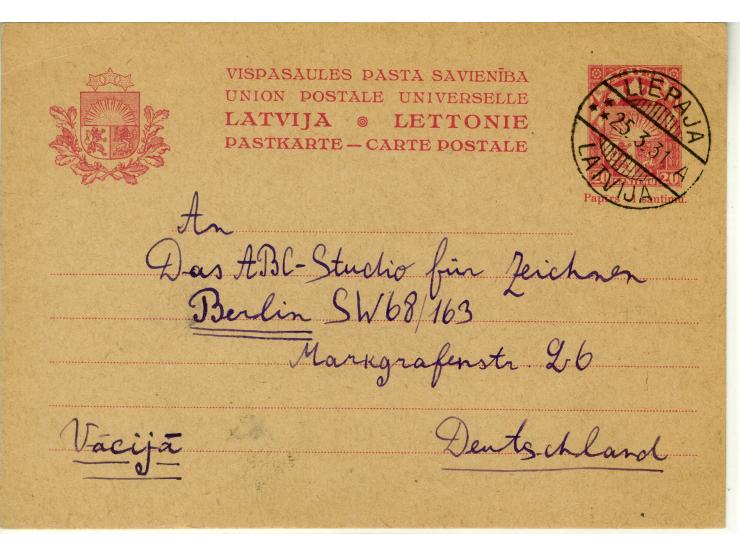 VISPASAULES PASTA SAVIENĪBA
UNION POSTALE UNIVERSELLE
LATVIJA LETTONIE
PASTKARTE — CARTE POSTALE
LIEPAJA
25.3.31 A
LATVIJA
20 20
Papīrs santimu.
An
Das ABC-Studio für Zeichnen
Berlin SW68/163
Markgrafenstr. 26
Vācijā Deutschland